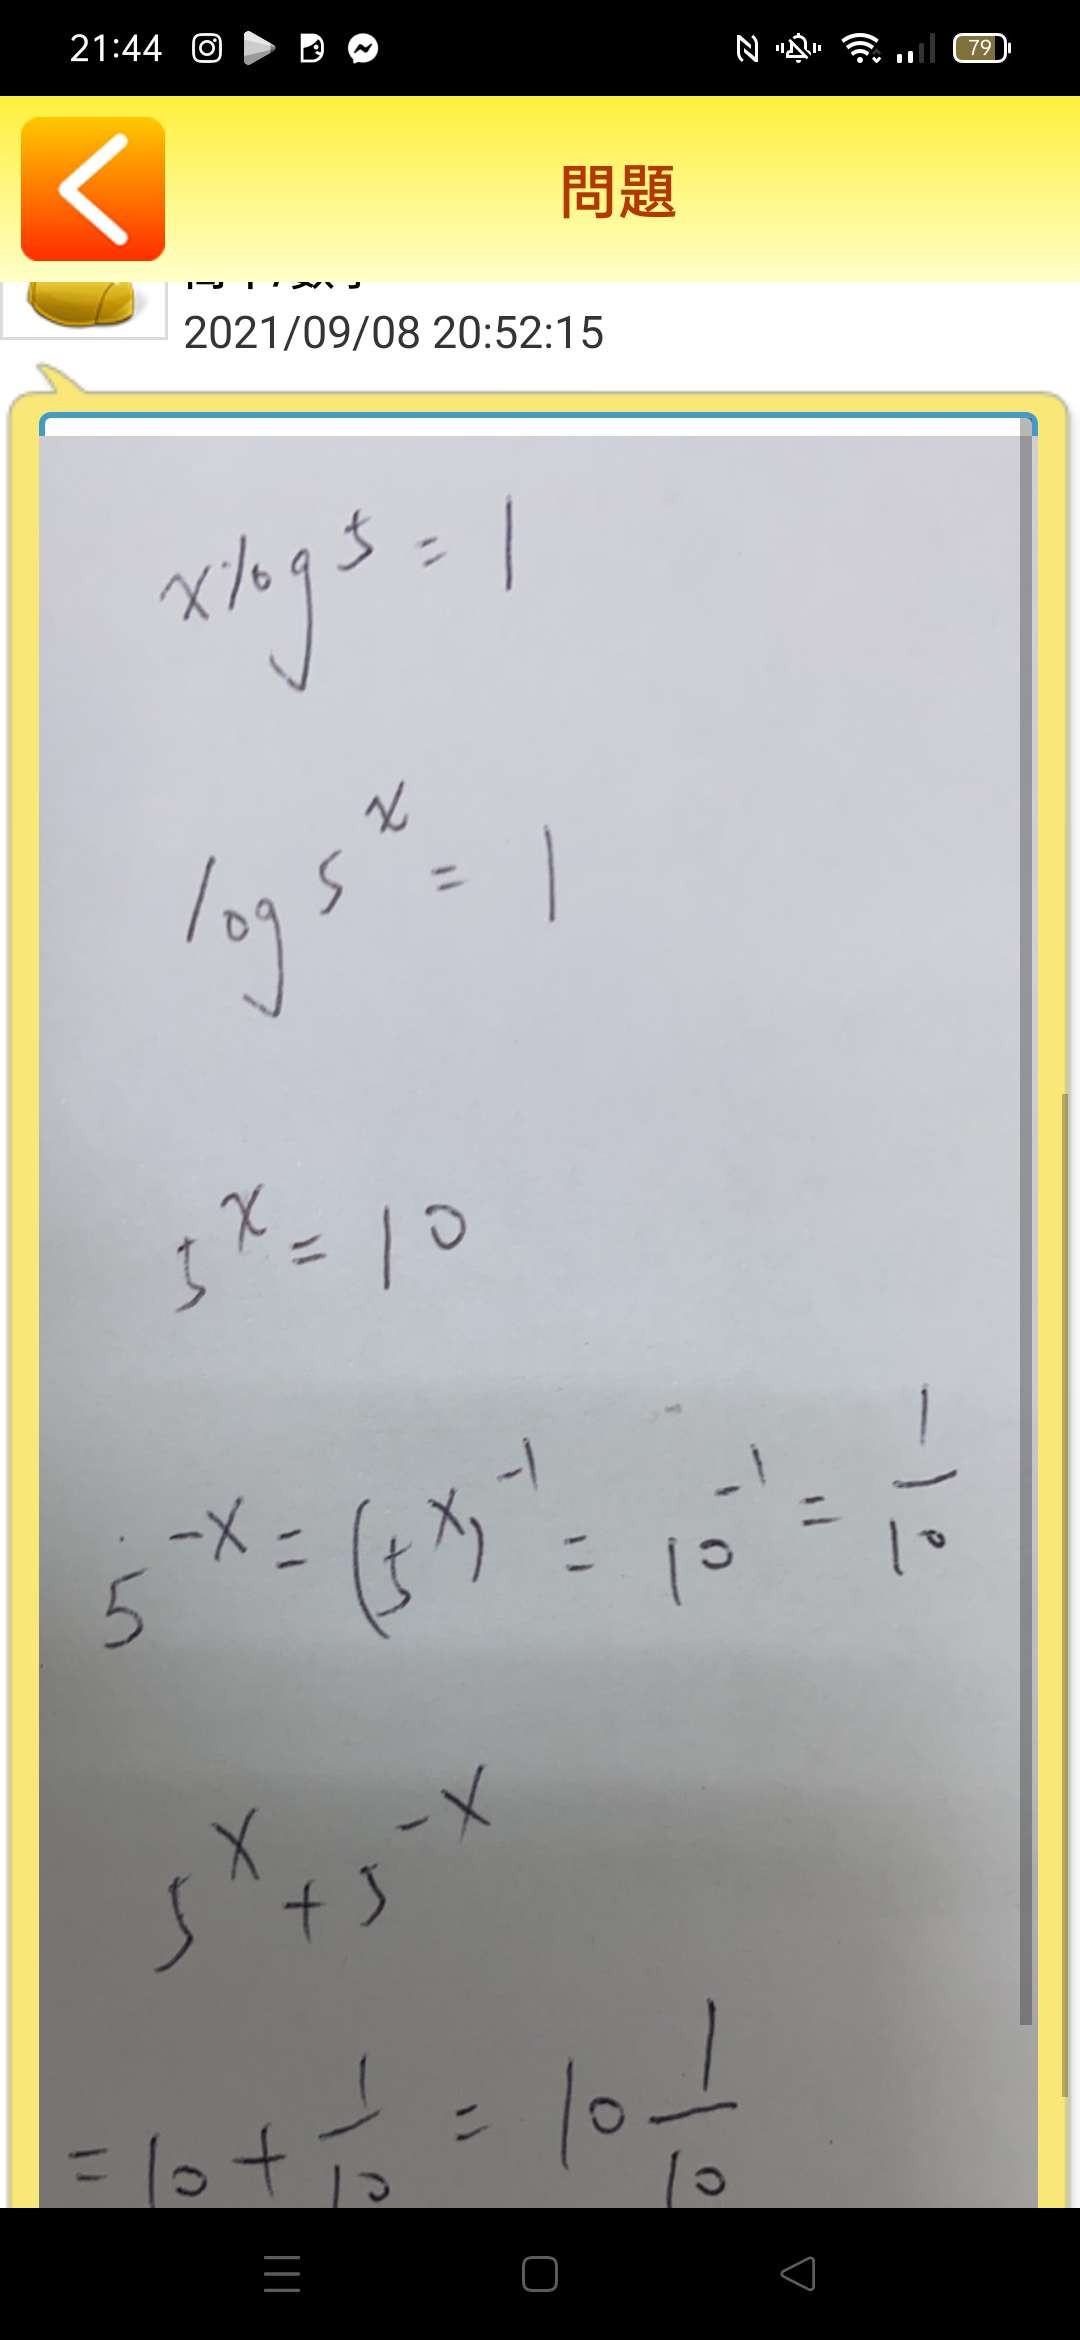 21:44
79
問題
2021/09/08 20:52:15
x log 5 = 1
log 5^x = 1
5^x = 10
5^-x = (5^x)^-1 = 10^-1 = 1/10
5^x + 5^-x
= 10 + 1/10 = 10 1/10